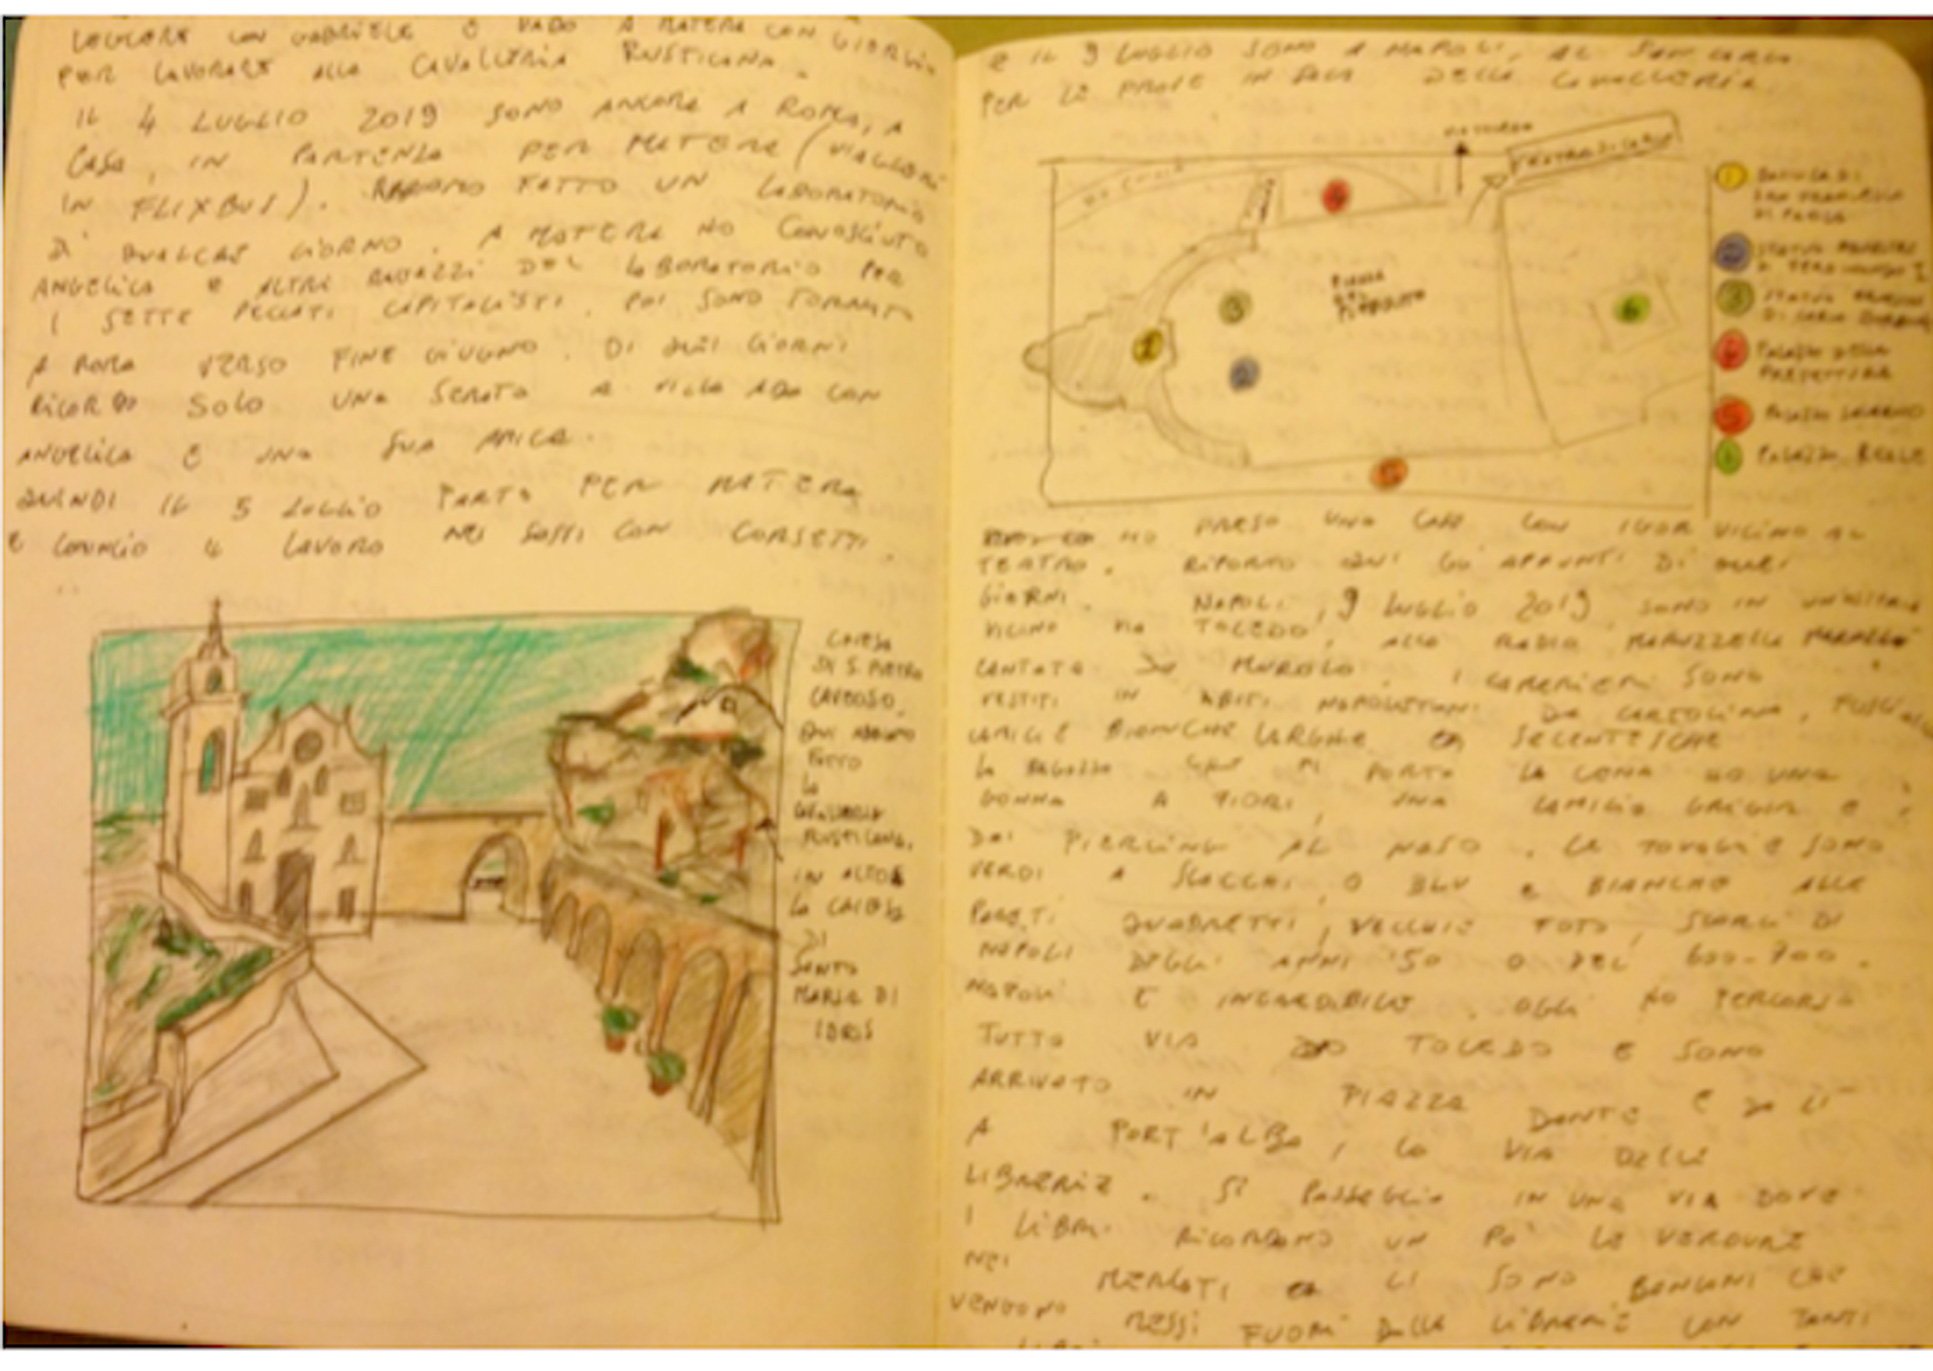 LEGGERE CON GABRIELE E VADO A MATERA CON GIORGIO
PER LAVORARE ALLA CAVALLERIA RUSTICANA.
IL 4 LUGLIO 2019 SONO ANCORA A ROMA, A
CASA, IN PARTENZA PER MATERA (VIAGGERÒ
IN FLIXBUS). FATTO UN LABORATORIO
DI QUALCHE GIORNO. A MATERA HO CONOSCIUTO
ANGELICA E ALTRI RAGAZZI DEL LABORATORIO PER
I SETTE PECCATI CAPITALISTI. POI SONO TORNATO
A ROMA VERSO FINE GIUGNO. DI QUEI GIORNI
RICORDO SOLO UNA SERATA A VILLA ADA CON
ANGELICA E UNA SUA AMICA.
QUINDI IL 5 LUGLIO PARTO PER MATERA
E COMINCIO IL LAVORO NEI SASSI CON CORSETTI.
CHIESA
DI S. PIETRO
CAVEOSO.
QUI ABBIAMO
FATTO
LA
CAVALLERIA
RUSTICANA.
IN ALTO
LA CHIESA
DI
SANTA
MARIA DI
IDRIS
E IL 9 LUGLIO SONO A NAPOLI, AL SAN CARLO
PER LE PROVE IN SALA DELLA CAVALLERIA.
TEATRO S. CARLO
PIAZZA
DEL
PLEBISCITO
1 BASILICA DI
SAN FRANCESCO
DI PAOLA
2 STATUA EQUESTRE
FERDINANDO I
3 STATUA EQUESTRE
DI CARLO BORBONE
4 PALAZZO DELLA
PREFETTURA
5 PALAZZO SALERNO
6 PALAZZO REALE
HO PRESO UNA CASA CON IGOR VICINO AL
TEATRO. RIPORTO QUI GLI APPUNTI DI QUEI
GIORNI. NAPOLI, 9 LUGLIO 2019. SONO IN UN'OSTERIA
VICINO VIA TOLEDO, ALLA RADIO MARUZZELLA
CANTATA DA MUROLO. I CAMERIERI SONO
VESTITI IN ABITI NAPOLETANI DA CARTOLINA,
CAMICIE BIANCHE LARGHE SEICENTESCHE
LA RAGAZZA CHE MI PORTA LA CENA HA UNA
GONNA A FIORI, UNA CAMICIA GRIGIA E
DEI PIERCING AL NASO. LE TOVAGLIE SONO
VERDI A SCACCHI, O BLU E BIANCHE ALLE
PARETI QUADRETTI, VECCHIE FOTO, SCORCI DI
NAPOLI DEGLI ANNI '50 O DEL 600-700.
NAPOLI È INCREDIBILE. OGGI HO PERCORSO
TUTTA VIA TOLEDO E SONO
ARRIVATO IN PIAZZA DANTE E DA LÌ
A PORT'ALBA, LA VIA DELLE
LIBRERIE. SI PASSEGGIA IN UNA VIA DOVE
I LIBRI RICORDANO UN PO' LE VERDURE
NEI MERCATI CI SONO BANCONI CHE
VENGONO MESSI FUORI DALLE LIBRERIE CON TANTI
LIBRI